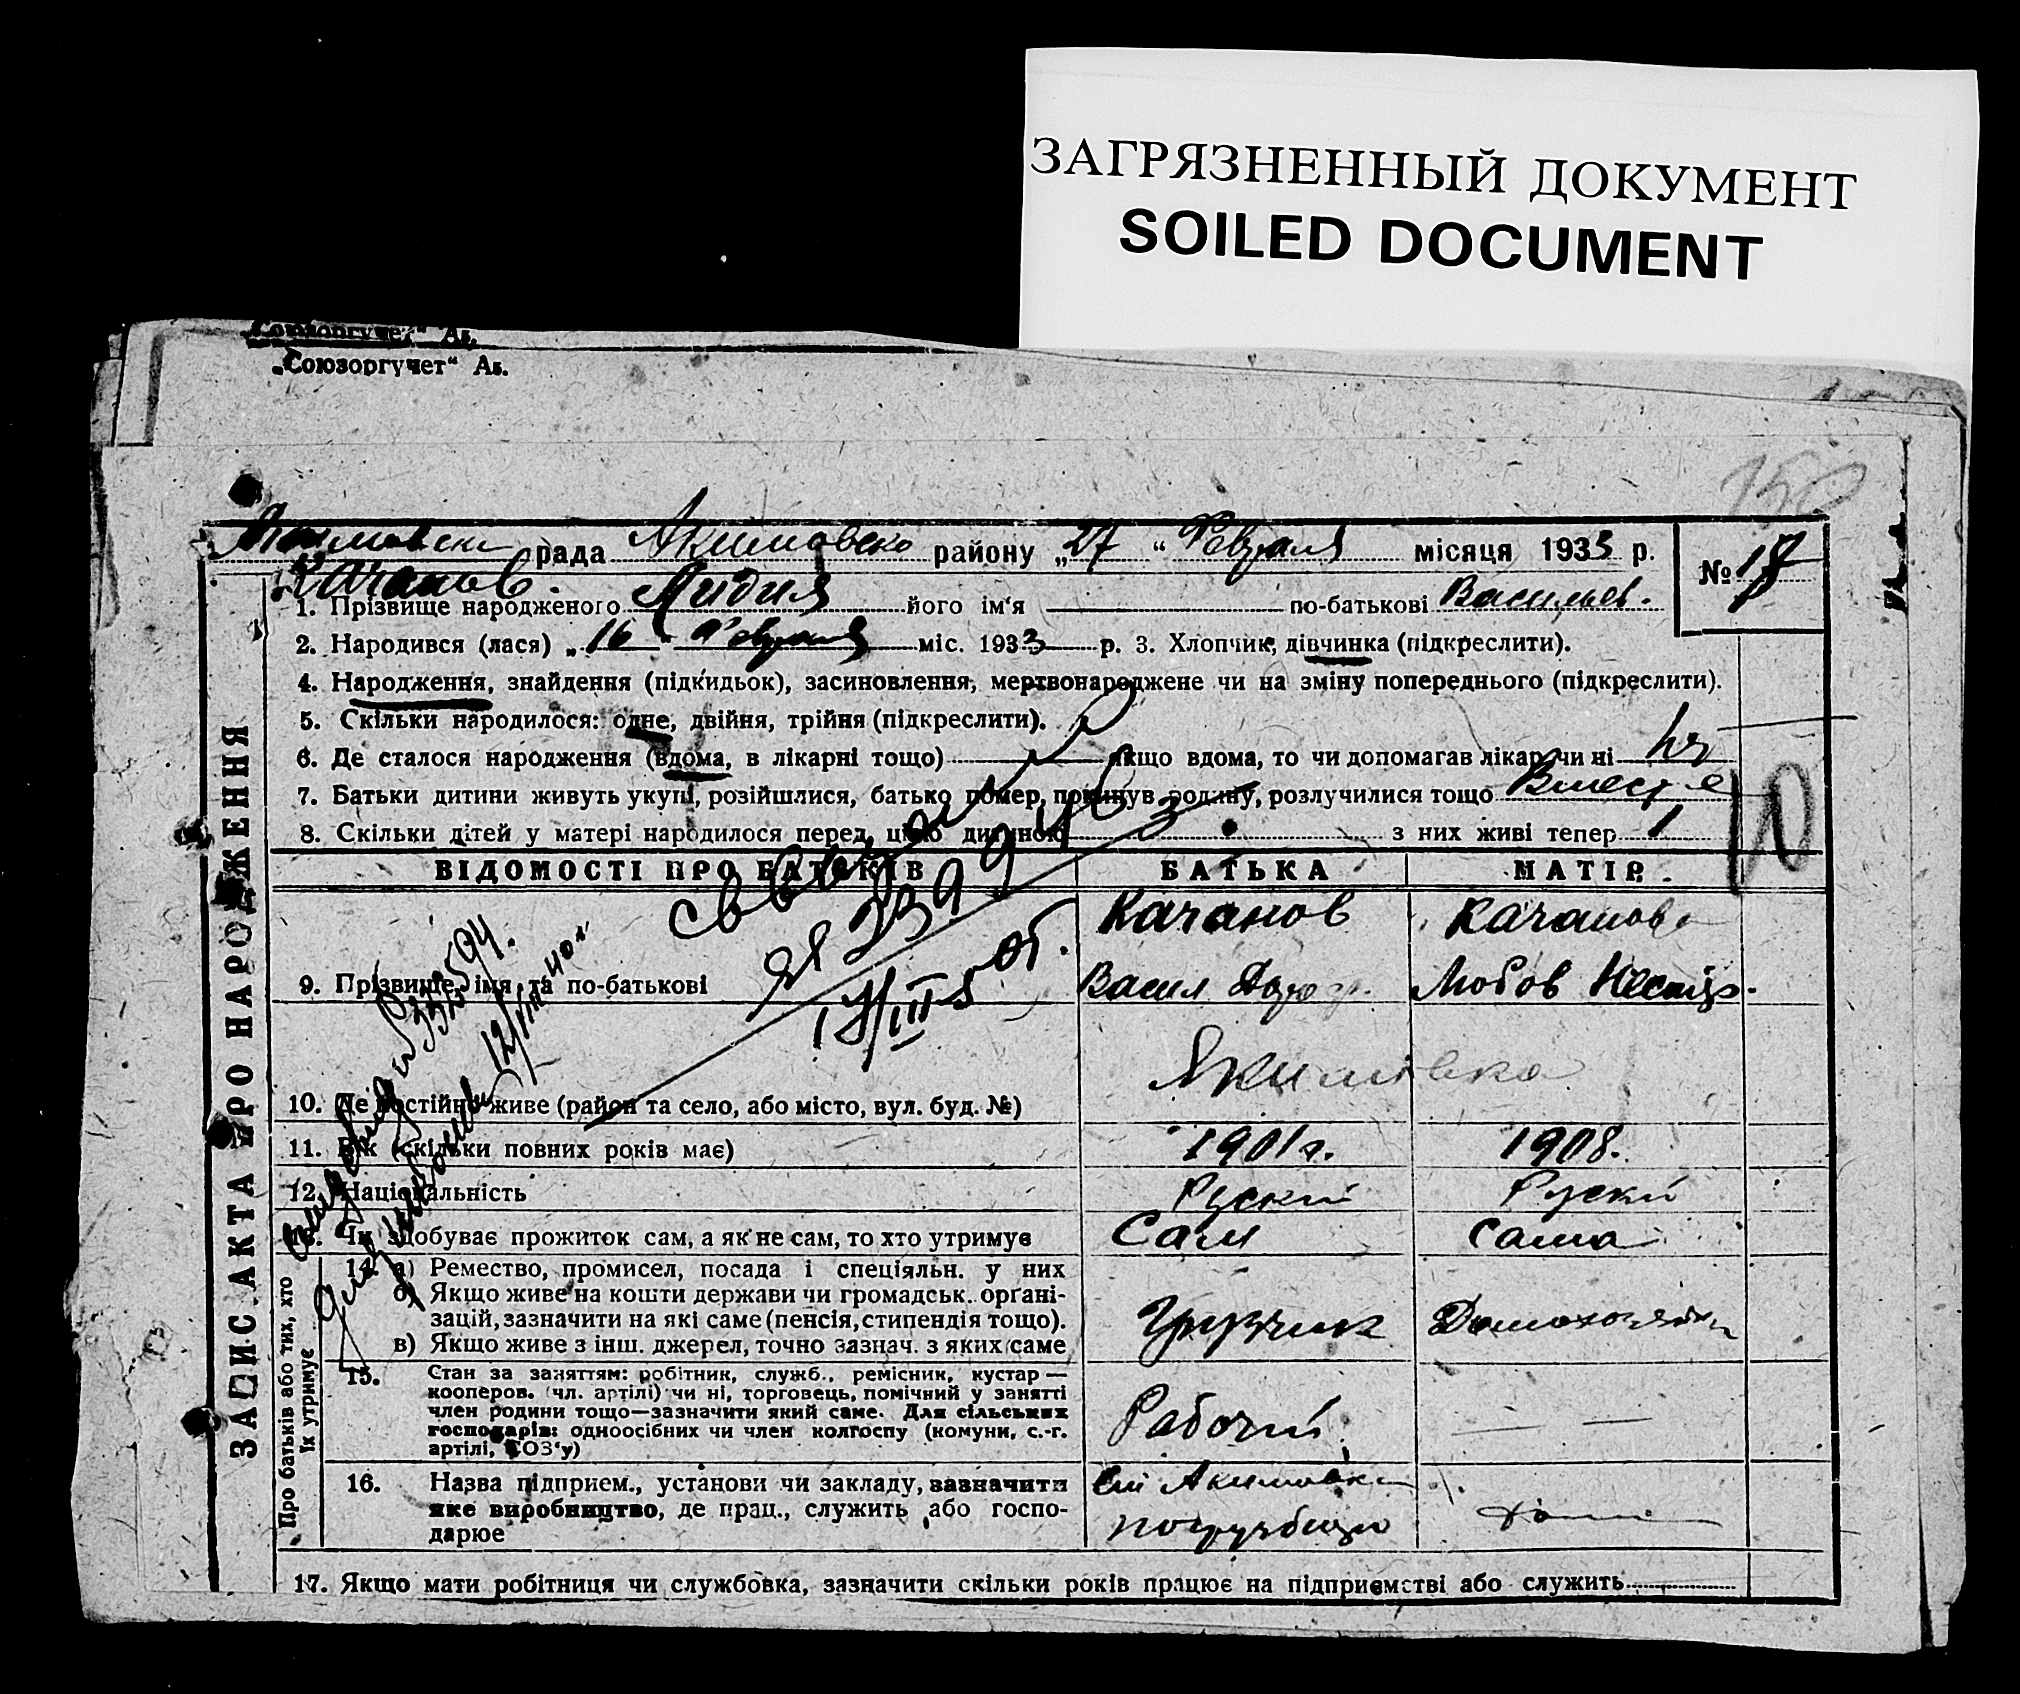 ЗАГРЯЗНЕННЫЙ ДОКУМЕНТ
SOILED DOCUMENT
„Союзоргучет“
„Союзоргучет“
150
рада Акимовско району „27“ Февраля місяця 1933 р.
№ 17
Качанов.
1. Прізвище народженого Лидия його ім‘я по-батькові Васильев.
2. Народився (лася) „16 Февраля міс. 1933 р. 3. Хлопчик, дівчинка (підкреслити).
4. Народження, знайдення (підкидьок), засиновлення, мертвонароджене чи на зміну попереднього (підкреслити).
5. Скільки народилося: одне, двійня, трійня (підкреслити).
6. Де сталося народження (вдома, в лікарні тощо) якщо вдома, то чи допомагав лікар чи ні
7. Батьки дитини живуть укупі, розійшлися, батько помер, покинув родину, розлучилися тощо Вместе
8. Скільки дітей у матері народилося перед цією дитиною 3 з них живі тепер 1
10
ЗАПИС АКТА ПРО НАРОДЖЕННЯ
ВІДОМОСТІ ПРО БАТЬКІВ БАТЬКА МАТІР
Качанов Качанова
9. Прізвище, імя та по-батькові Васил Любов
Якимовка
10. Де постійно живе (район та село, або місто, вул. буд. №)
11. Вік (скільки повних років має) 1901 г. 1908.
12. Національність Руский Руски
13. Чи здобуває прожиток сам, а як не сам, то хто утримує Сам Сама
Про батьків або тих, хто їх утримує
14. а) Ремество, промисел, посада і спеціяльн. у них
б) Якщо живе на кошти держави чи громадськ. органі-
зацій, зазначити на які саме (пенсія, стипендія тощо).
в) Якщо живе з інш. джерел, точно зазнач. з яких саме
Грузчик Домохозяйки
15. Стан за заняттям: робітник, служб., ремісник, кустар—
кооперов. (чл. артілі) чи ні, торговець, помічний у занятті
член родини тощо—зазначити який саме. Для сільських
господарів: одноосібних чи член колгоспу (комуни, с.-г.
артілі, СОЗ‘у)
Рабочий
16. Назва підприєм., установи чи закладу, зазначити
яке виробництво, де прац., служить або госпо-
дарює
Акимовка
17. Якщо мати робітниця чи службовка, зазначити скільки років працює на підприємстві або служить